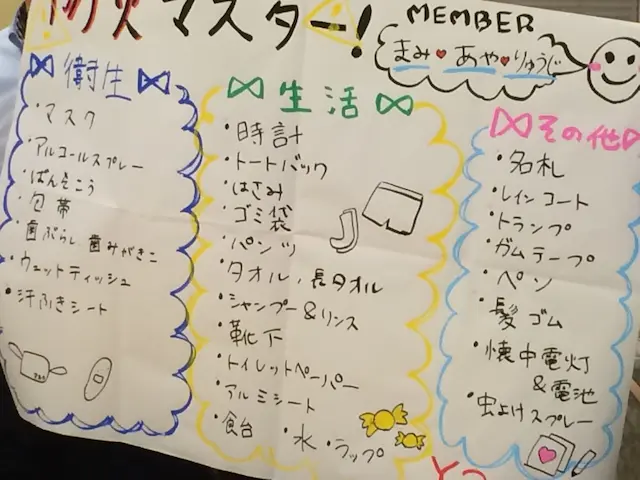 防災マスター!
MEMBER
まみ♥あや♥りゅうじ
衛生
・マスク
・アルコールスプレー
・ばんそこう
・包帯
・歯ぶらし 歯みがきこ
・ウェットティッシュ
・汗ふきシート
生活
・時計
・トートバック
・はさみ
・ゴミ袋
・パンツ
・タオル、長タオル
・シャンプー&リンス
・靴下
・トイレットペーパー
・アルミシート
・飴 ・水 ・ラップ
その他
・名札
・レインコート
・トランプ
・ガムテープ
・ペン
・髪ゴム
・懐中電灯
&電池
・虫よけスプレー